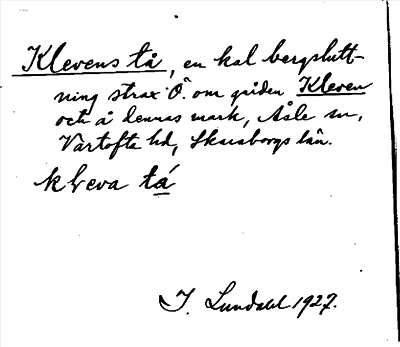 Klevens tå, en kal bergslutt-
ning strax Ö. om gården Kleven
och å dennas mark, Åsle sn,
Vartofta hd, Skaraborgs län.
kleva tá
J. Lundahl 1927.